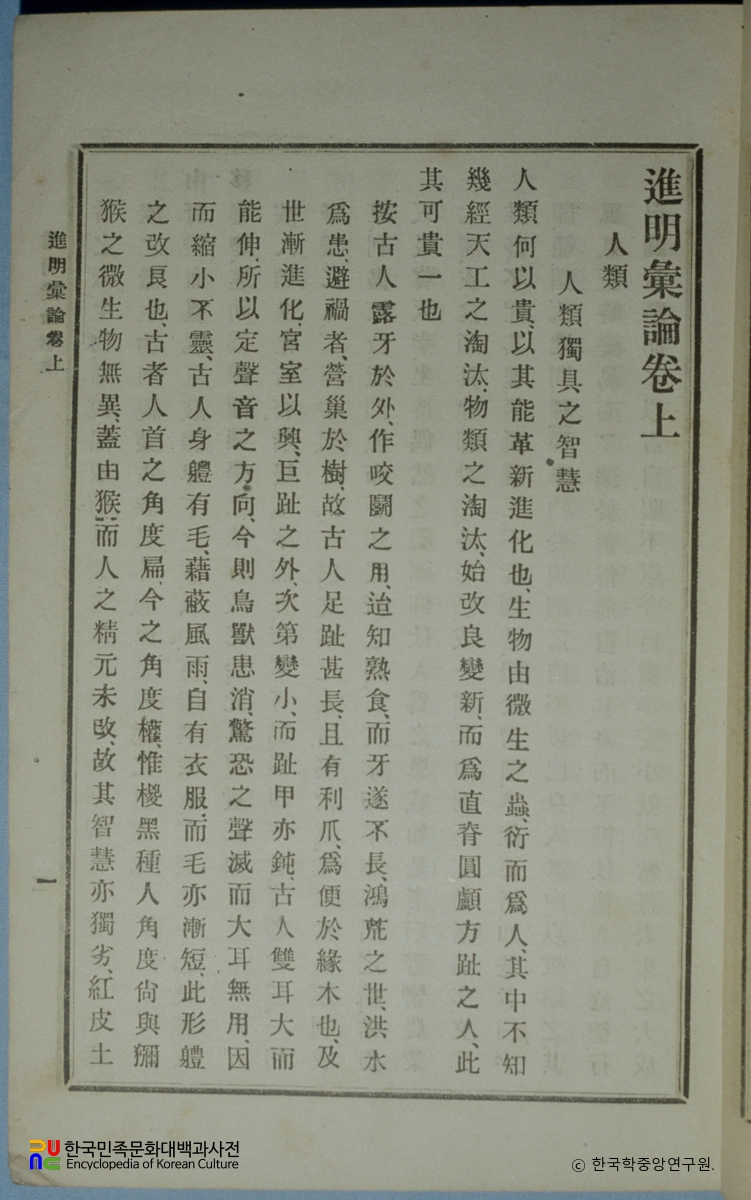 進明彙論卷上
人類
人類獨具之智慧
人類何以貴、以其能革新進化也、生物由微生之蟲、衍而爲人、其中不知
幾經天工之淘汰、物類之淘汰、始改良變新、而爲直脊圓顱方趾之人、此
其可貴一也
按古人露牙於外、作咬鬪之用、迨知熟食、而牙遂不長、鴻荒之世、洪水
爲患、避禍者、營巢於樹、故古人足趾甚長、且有利爪、爲便於緣木也、及
世漸進化、宮室以興、巨趾之外、次第變小、而趾甲亦鈍、古人雙耳大而
能伸、所以定聲音之方向、今則鳥獸患消、驚恐之聲滅而大耳無用、因
而縮小不靈、古人身軆有毛、藉蔽風雨、自有衣服、而毛亦漸短、此形軆
之改良也、古者人首之角度扁、今之角度權、惟椶黑種人角度尙與獮
猴之微生物無異、蓋由猴而人之精元未改、故其智慧亦獨劣、紅皮土
進明彙論卷上
一
한국민족문화대백과사전
Encyclopedia of Korean Culture
© 한국학중앙연구원.